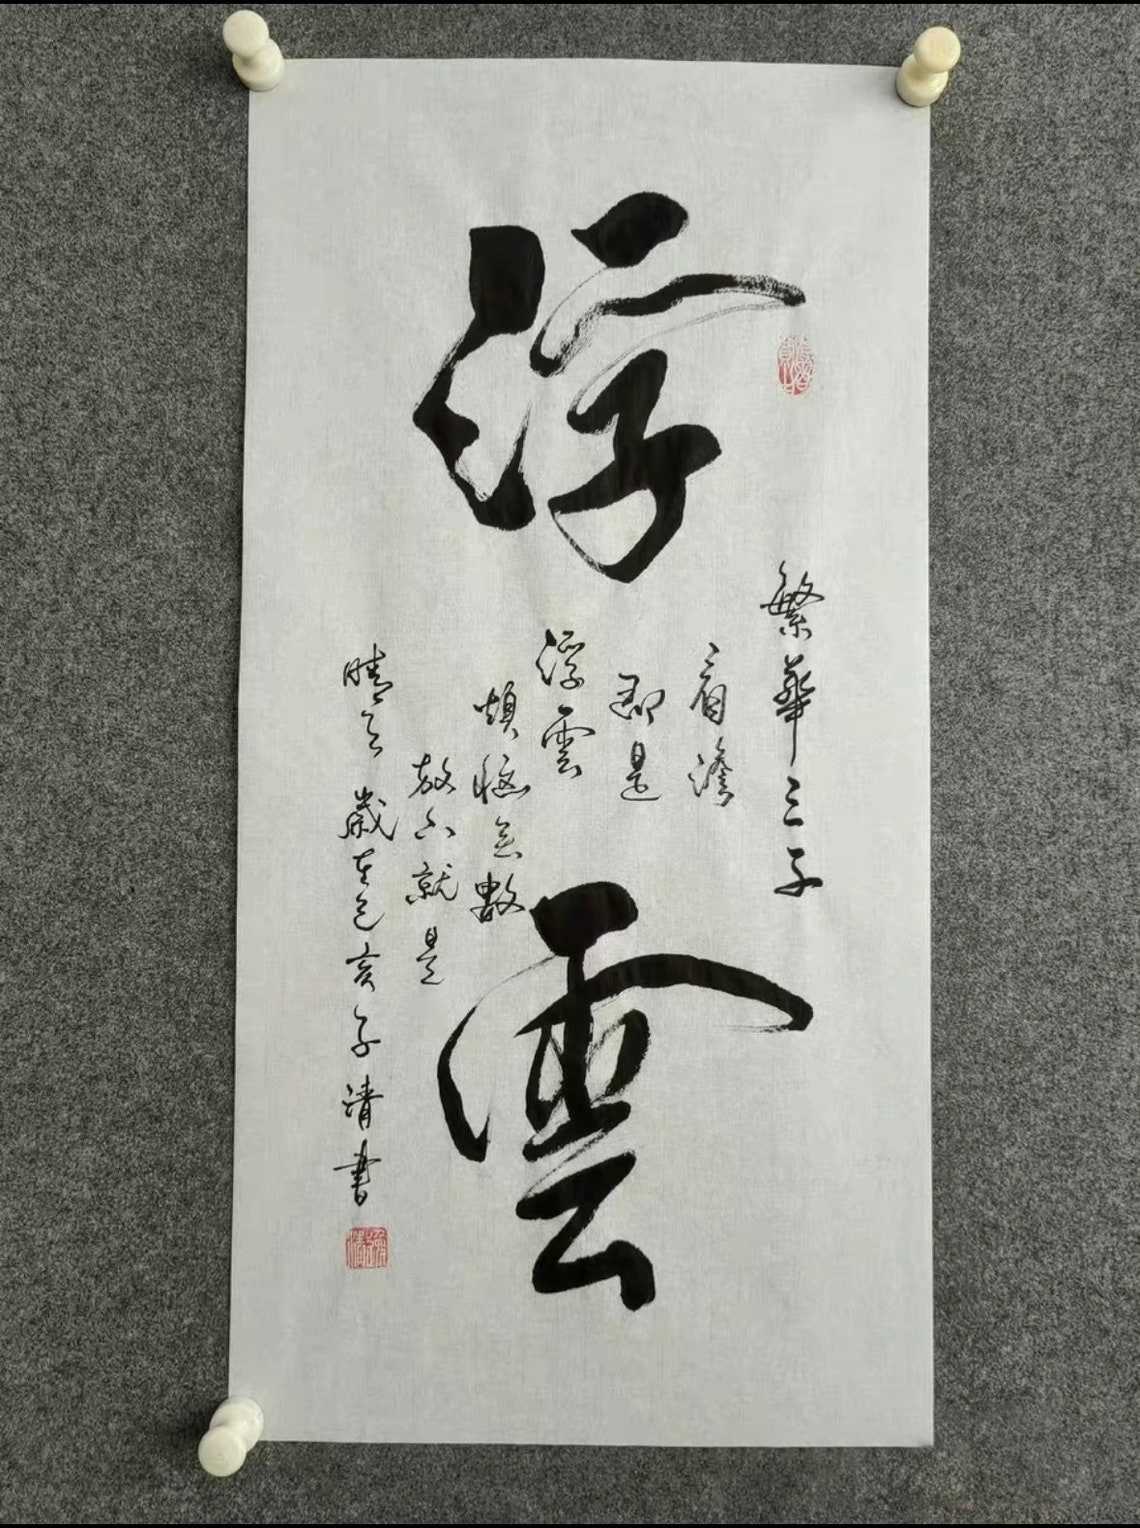 浮雲
繁華三千
看淡
即是
浮雲
煩惱無數
放下就是
晴天 歲在己亥 子清書